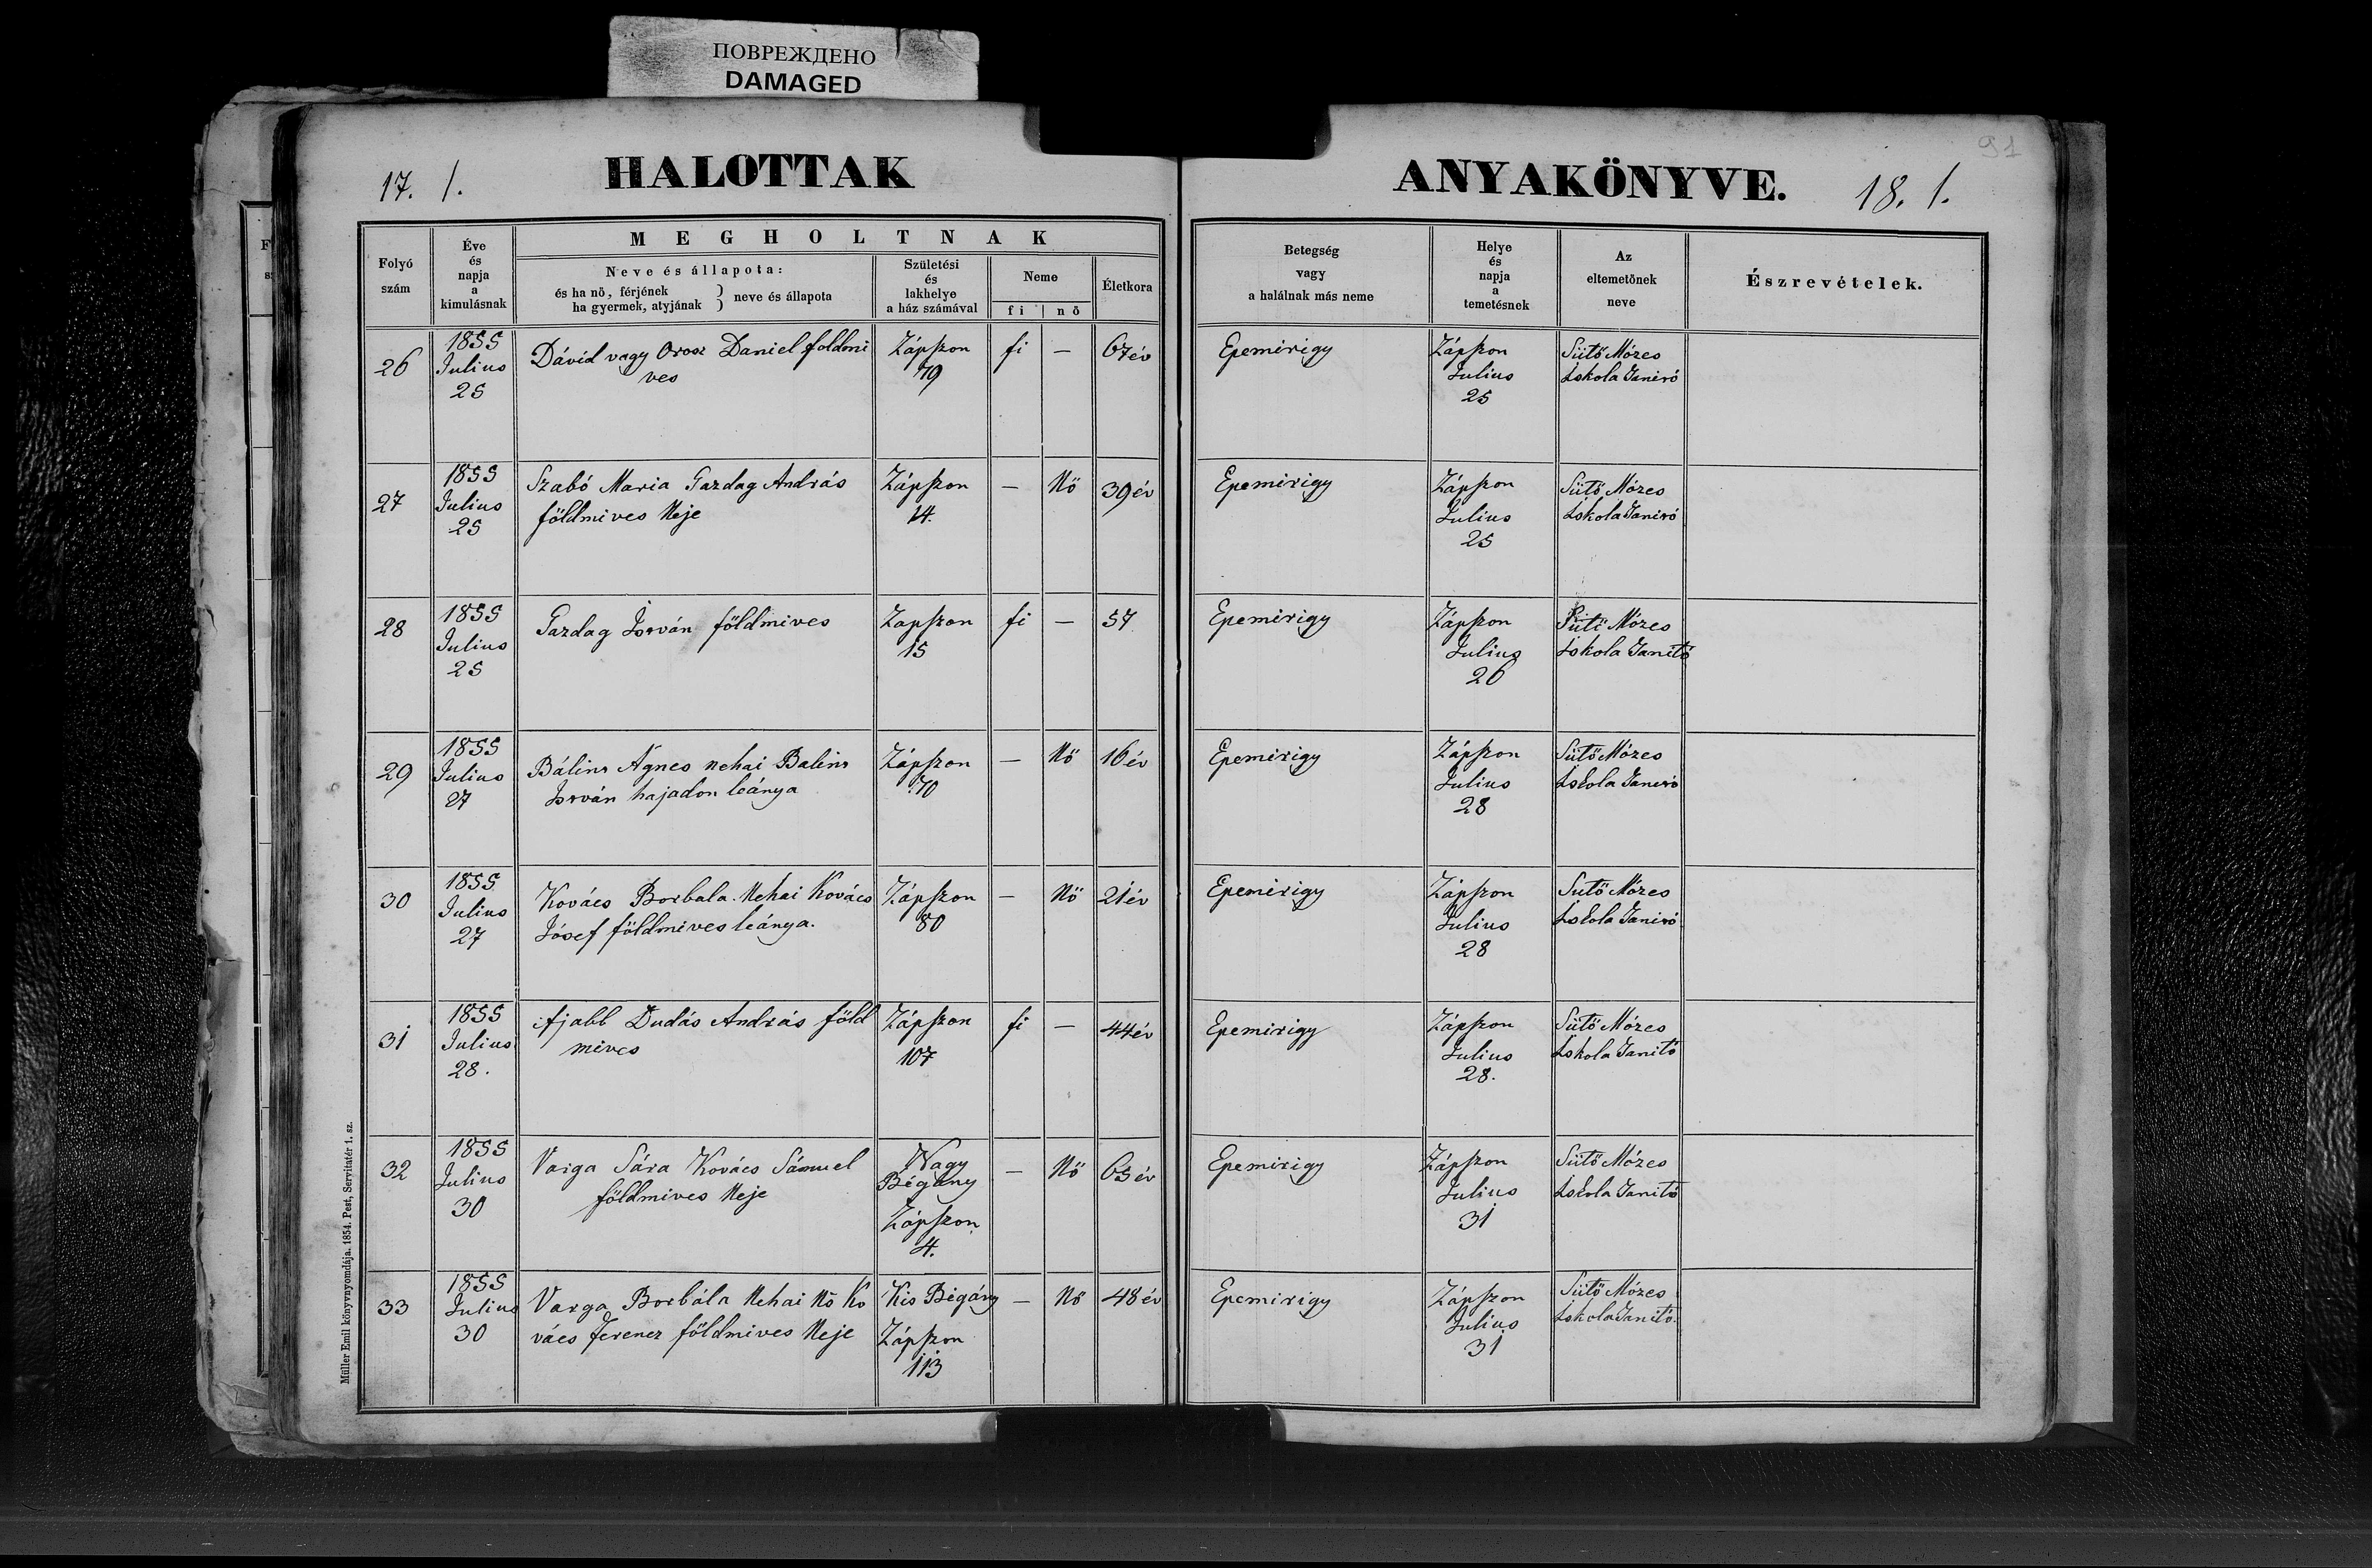 ПОВРЕЖДЕНО
DAMAGED
91
17. l.
HALOTTAK
ANYAKÖNYVE.
18. l.
Folyó
szám
Éve
és
napja
a
kimulásnak
MEGHOLTNAK
Neve és állapota:
és ha nő, férjének
ha gyermek, atyjának } neve és állapota
Születési
és
lakhelye
a ház számával
Neme
fi | nő
Életkora
Betegség
vagy
a halálnak más neme
Helye
és
napja
a
temetésnek
Az
eltemetőnek
neve
Észrevételek.
26
1855
Julius
25
Dávid vagy Orosz Daniel foldmi
ves
Zápszon
79
fi
—
67 év
Epemirigy
Zápszon
Julius
25
Sütő Mózes
Iskola Tanitó
27
1855
Julius
25
Szabó Maria Gazdag András
földmives Neje
Zápszon
14.
—
Nő
39 év
Epemirigy
Zápszon
Julius
25
Sütő Mózes
Iskola Tanitó
28
1855
Julius
25
Gazdag István földmives
Zapszon
15
fi
—
57
Epemirigy
Zápszon
Julius
26
Sütő Mózes
Iskola Tanító
29
1855
Julius
27
Bálint Ágnes nehai Balint
István hajadon leánya
Zápszon
70
—
Nő
16 év
Epemirigy
Zápszon
Julius
28
Sütő Mózes
Iskola Tanitó
30
1855
Julius
27
Kovács Borbala. Nehai Kovács
Jósef földmives leánya.
Zápszon
80
—
Nő
21 év
Epemirigy
Zápszon
Julius
28
Sutő Mózes
Iskola Tanitó
31
1855
Julius
28.
ifjabb Dudás András föld
mives
Zápszon
107
fi
—
44 év
Epemirigy
Zápszon
Julius
28.
Sütő Mózes
Iskola Tanitó
32
1855
Julius
30
Varga Sára Kovács Sámuel
földmives Neje
Nagy
Bégány
Zápszon
4.
—
Nő
65 év
Epemirigy
Zápszon
Julius
31
Sütő Mózes
Iskola Tanitó
33
1855
Julius
30
Varga Borbála Nehai Nő Ko
vács Ferencz földmives Neje
Kis Bégány
Zápszon
113
—
Nő
48 év
Epemirigy
Zápszon
Julius
31
Sütő Mózes
Iskola Tanitó.
Müller Emil könyvnyomdája. 1854. Pest, Servitatér 1. sz.